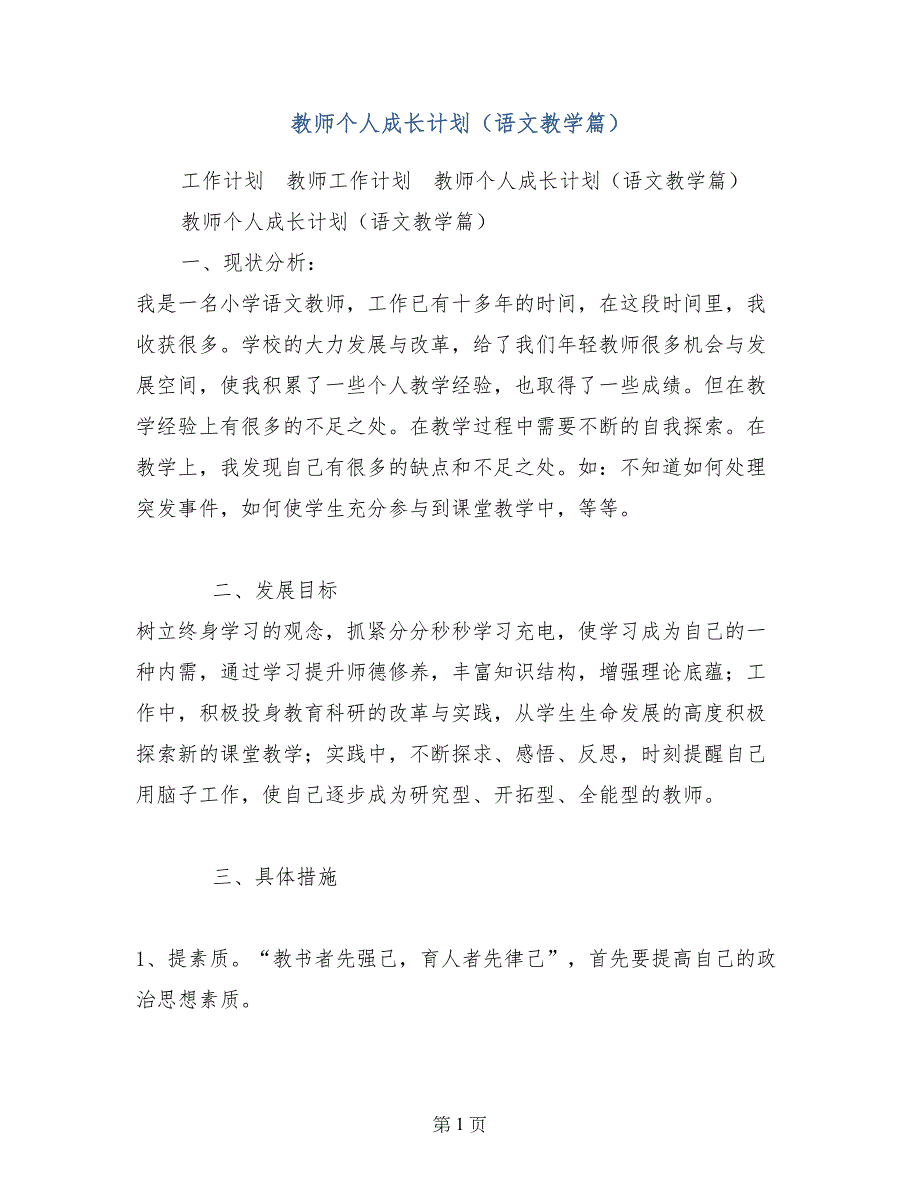 教师个人成长计划（语文教学篇）
工作计划 教师工作计划 教师个人成长计划（语文教学篇）
教师个人成长计划（语文教学篇）
一、现状分析：
我是一名小学语文教师，工作已有十多年的时间，在这段时间里，我
收获很多。学校的大力发展与改革，给了我们年轻教师很多机会与发
展空间，使我积累了一些个人教学经验，也取得了一些成绩。但在教
学经验上有很多的不足之处。在教学过程中需要不断的自我探索。在
教学上，我发现自己有很多的缺点和不足之处。如：不知道如何处理
突发事件，如何使学生充分参与到课堂教学中，等等。
二、发展目标
树立终身学习的观念，抓紧分分秒秒学习充电，使学习成为自己的一
种内需，通过学习提升师德修养，丰富知识结构，增强理论底蕴；工
作中，积极投身教育科研的改革与实践，从学生生命发展的高度积极
探索新的课堂教学；实践中，不断探求、感悟、反思，时刻提醒自己
用脑子工作，使自己逐步成为研究型、开拓型、全能型的教师。
三、具体措施
1、提素质。“教书者先强己，育人者先律己”，首先要提高自己的政
治思想素质。
第 1 页